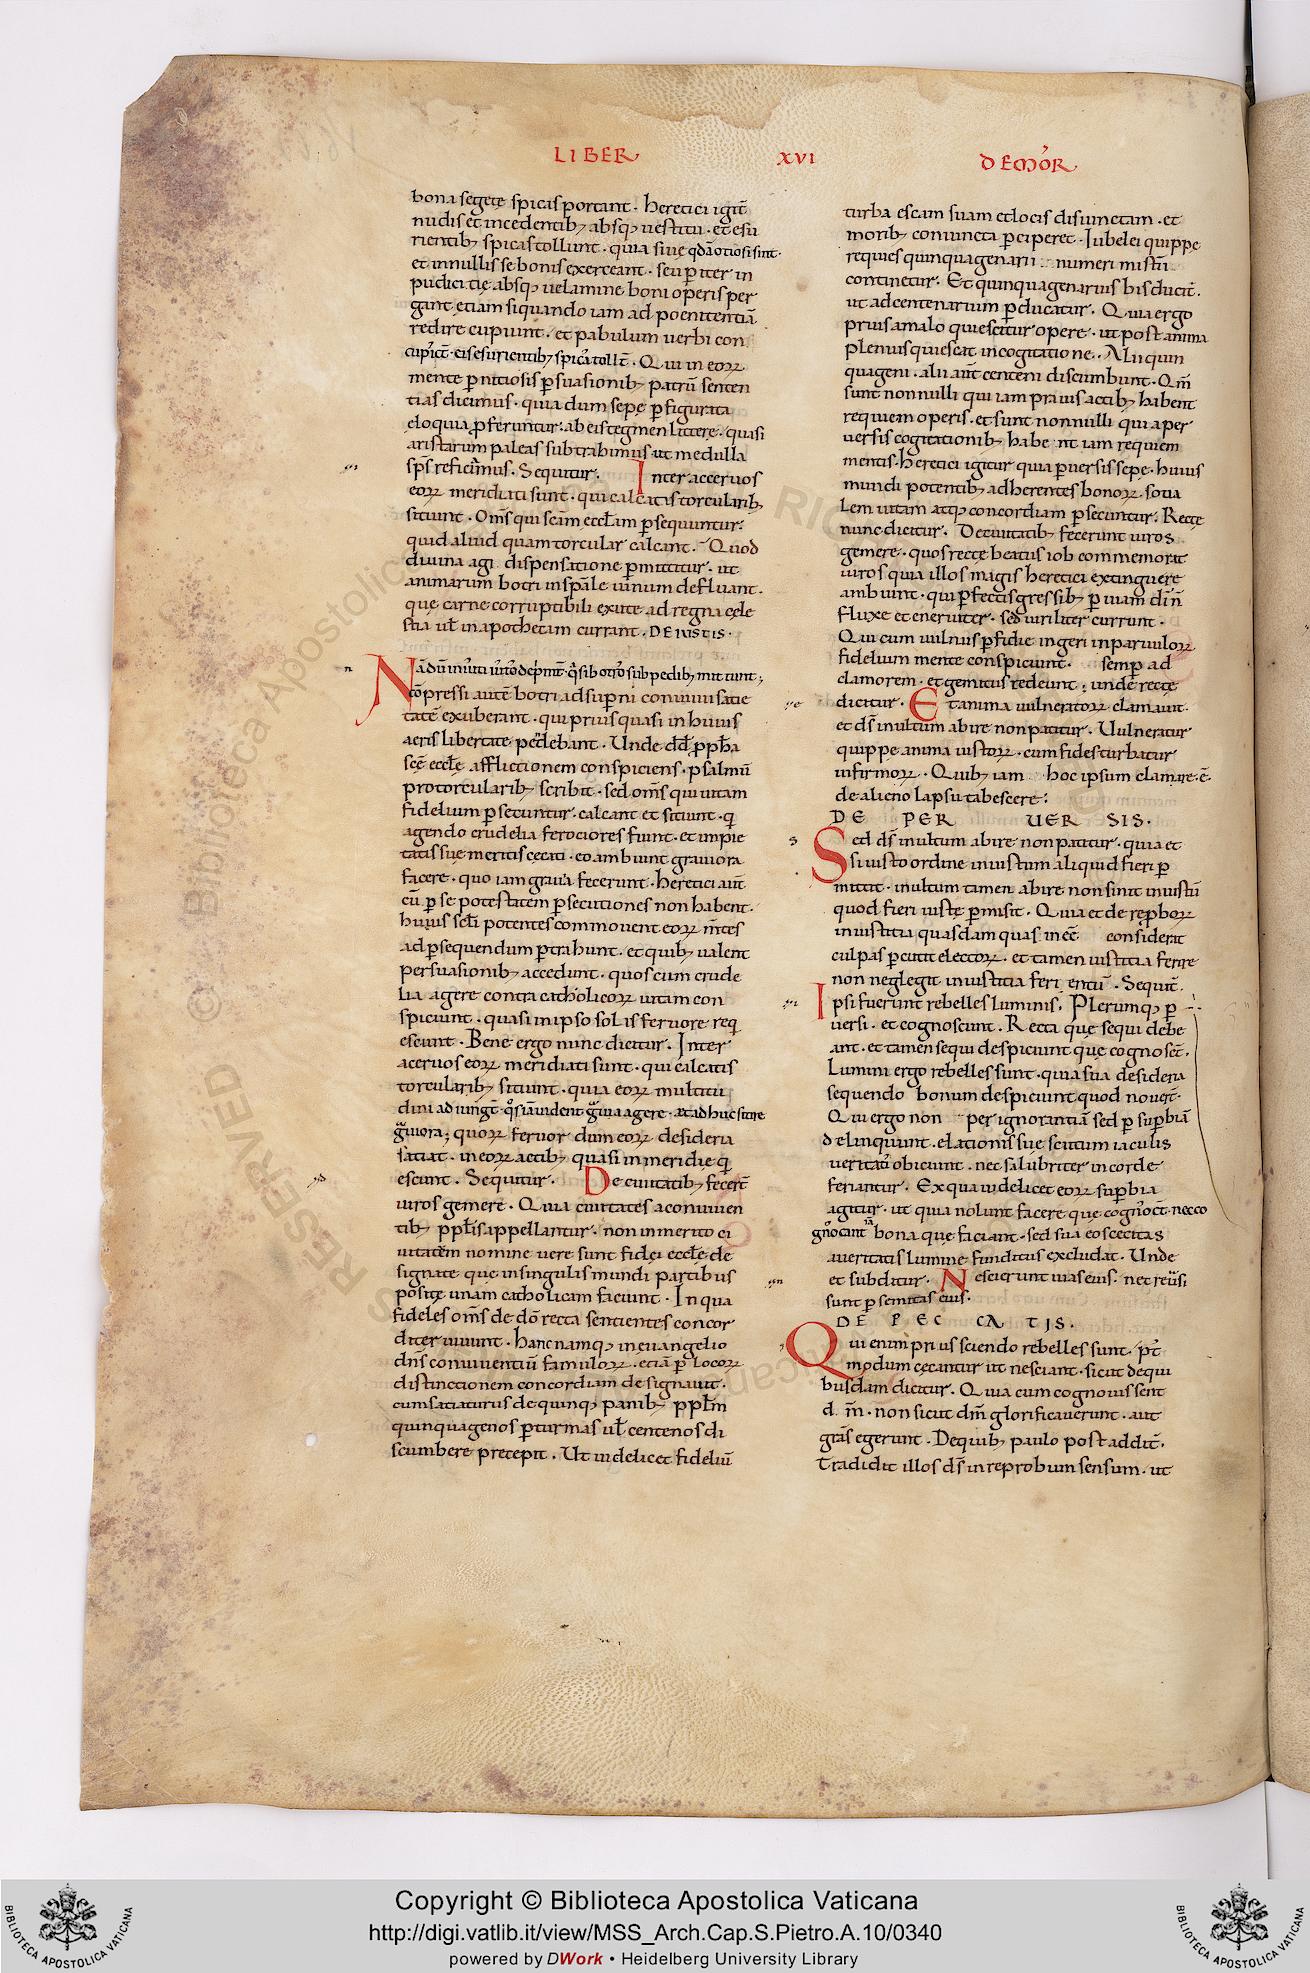 LIBER XVI DEMOR̃
bona segetẹ spicas portant . heretici igit̃
nudis et incedentib; absq; uestitu . et esu
rientib; spicas tollunt . quia siuẹ qdã otiosi sint .
et in nullis se bonis exerceant . seu p iter in
pudicitiẹ absq; uelamine boni operis per
gant . etiam siquando iam ad poenitentiã
redire cupiunt . et pabulum uerbi con
cupict̃ . eis esurientib; spicã tollt̃ . Qui in eoꝝ
mente pnitiosis psuasionib; patrũ senten
tias dicimus . quia dum sepẹ p figurata
eloquia proferuntur : ab eis tegmen litterẹ . quasi
aristarum paleas subtrahimus . ut medulla
sp̃s reficimus . Sequitur . Inter aceruos
eoꝝ meridiati sunt . qui calcatis torcularib;
sitiunt . Om̃s qui scãm ecclãm psequuntur :
quid aliud quam torcular calcant . Quod
diuina agi dispensatione pmittitur . ut
animarum botri in spãle uinum defluant .
quẹ carne corruptibili exutẹ ad regna cẹle
stia ul̃ in apothecam currant . DE IUSTIS .
Nã dũ iniusti iustos depmt̃ . q̃sib otros sub pedib; mittunt ;
cõpressi autẽ botri ad supni conuiuii satie
tatẽ exuberant . qui prius quasi in huius
aeris libertate pendebant . Unde dd̃ pph̃a
scẹ̃ ecclẹ̃ afflictionem conspiciens . psalmũ
pro torcularib; scribit . sed om̃s qui uitam
fidelium psecuntur . calcant et sitiunt . q̃
agendo crudelia ferociores fiunt . et impie
tatis suẹ meritis cẹcati . eo ambiunt grauiora
facere . quo iam grauia fecerunt . heretici aut̃
cũ p se potestatem psecutiones non habent .
huius sec̃li potentes commouent eoꝝ m̃tes
ad psequendum ptrahunt . et quib; ualent
persuasionib; accedunt . quos cum crude
lia agere contra catholicoꝝ uitam con
spiciunt . quasi in ipso solis feruore req
escunt . Bene ergo nunc dicitur . Inter
aceruos eoꝝ meridiati sunt . qui calcatis
torcularib; sitiunt . quia eoꝝ multitu
dini adiungt̃ . q̃s iã uident g̃uia agere . et adhuc sitire
g̃uiora ; quoꝝ feruor dum eoꝝ desideria
satiat . in eoꝝ actib; quasi in meridie q̃
escunt . Sequitur . De ciuitatib; fecert̃
uiros gemere . Quia ciuitates a conuiuen
tib; ppl̃is appellantur . non inmerito ci
uitatẽm nomine uere sunt fidẹi ecclẹ̃ de
signate que in singulis mundi partibus
positẹ unam catholicam faciunt . In qua
fideles om̃s de dõ recta sentientes concor
diter uiuunt . hanc namq; in euangelio
dñs conuiuentiũ famuloꝝ . etiã p locoꝝ
distinctionem concordiam designauit .
cum satiaturus de quinq; panib; ppl̃m
quinquagenos p turmas ul̃ centenos di
scumbere precepit . Ut uidelicet fideliũ
turba escam suam et locis disiunctam . et
morib; coniuncta pciperet . Iubelei quippẹ
requies quinquagenarii numeri mist̃ii
continetur . Et quinquagenarius bis ducit̃ .
ut ad centenarium pducatur . Quia ergo
prius a malo quiescitur opere . ut post anima
plenius quiescat in cogitatione . Alii quin
quageni . alii aut̃ centeni discumbunt . Qm̃
sunt nonnulli qui iam prauis actib; habent
requiem operis . et sunt nonnulli qui a per
uersis cogitationib; habent iam requiem
mentis . heretici igitur quia puersis sepẹ . huius
mundi potentib; adherentes bonoꝝ . sotia
lem uitam atq; concordiam psecuntur . Rectẹ
nunc dicitur . De ciuitatib; fecerunt uiros
gemere . quos rectẹ beatus iob commemorat
uiros quia illos magis heretici extinguere
ambiunt . qui pfectis gressib; p uiam dĩ ñ
fluxe et eneruiter . sed uiriliter currunt .
Qui cum uulnus pfidie ingeri in paruuloꝝ
fidelium mente conspiciunt . semp ad
clamorem . et gemitus redeunt ; unde rectẹ
dicitur . Et anima uulneratoꝝ clamauit .
et ds̃ inultum abire non patitur . Uulneratur
quippe anima iustoꝝ . cum fides turbatur
infirmoꝝ . Quib; iam hoc ipsum clamare . ẽ .
de alieno lapsu tabescere :
DE PER UER SIS .
Sed ds̃ inultum abire non patitur . quia et
si iusto ordine iniustum aliquid fieri p
mittit . inultum tamen abire non sinit iniustũ
quod fieri iustẹ pmisit . Quia et de reproboꝝ
iniustitia quasdam quas in eẽ considerat
culpas pcutit electoꝝ . et tamen iustitia ferire
non neglegit iniustitia feri entũ . Sequit̃ .
Ipsi fuerunt rebelles luminis . Plerumq; p
uersi . et cognoscunt . Recta quẹ sequi debe
ant . et tamen sequi despiciunt quẹ cognosct̃ .
Lumini ergo rebelles sunt . quia sua desideria
sequendo bonum despiciunt quod nouert̃ .
Qui ergo non per ignorantiã sed p supbiã
delinquunt . elationis suẹ scutum iaculis
ueritatis obiciunt . nec salubriter in corde
feriantur . Ex qua uidelicet eoꝝ supbia
agitur . ut quia nolunt facere que cogn̊oct̃ . nec co
gn̊ocant iã bona que faciant . sed sua eos cecitas
a ueritatis lumine funditus excludat . Unde
et subditur . Nescierunt uias eius . nec reũsi
sunt p semitas eius .
DE PEC CA TIS .
Qui enim prius sciendo rebelles sunt . pt̃
modum cẹcantur ut nesciant . sicut de qui
busdam dicitur . Quia cum cognouissent
d m̃ . non sicut dm̃ glorificauerunt . aut
grãs egerunt . De quib; paulo post addit̃ .
Tradidit illos ds̃ in reprobum sensum . ut
Copyright © Biblioteca Apostolica Vaticana
http://digi.vatlib.it/view/MSS_Arch.Cap.S.Pietro.A.10/0340
powered by DWork • Heidelberg University Library
BIBLIOTECA APOSTOLICA VATICANA
BIBLIOTECA APOSTOLICA VATICANA